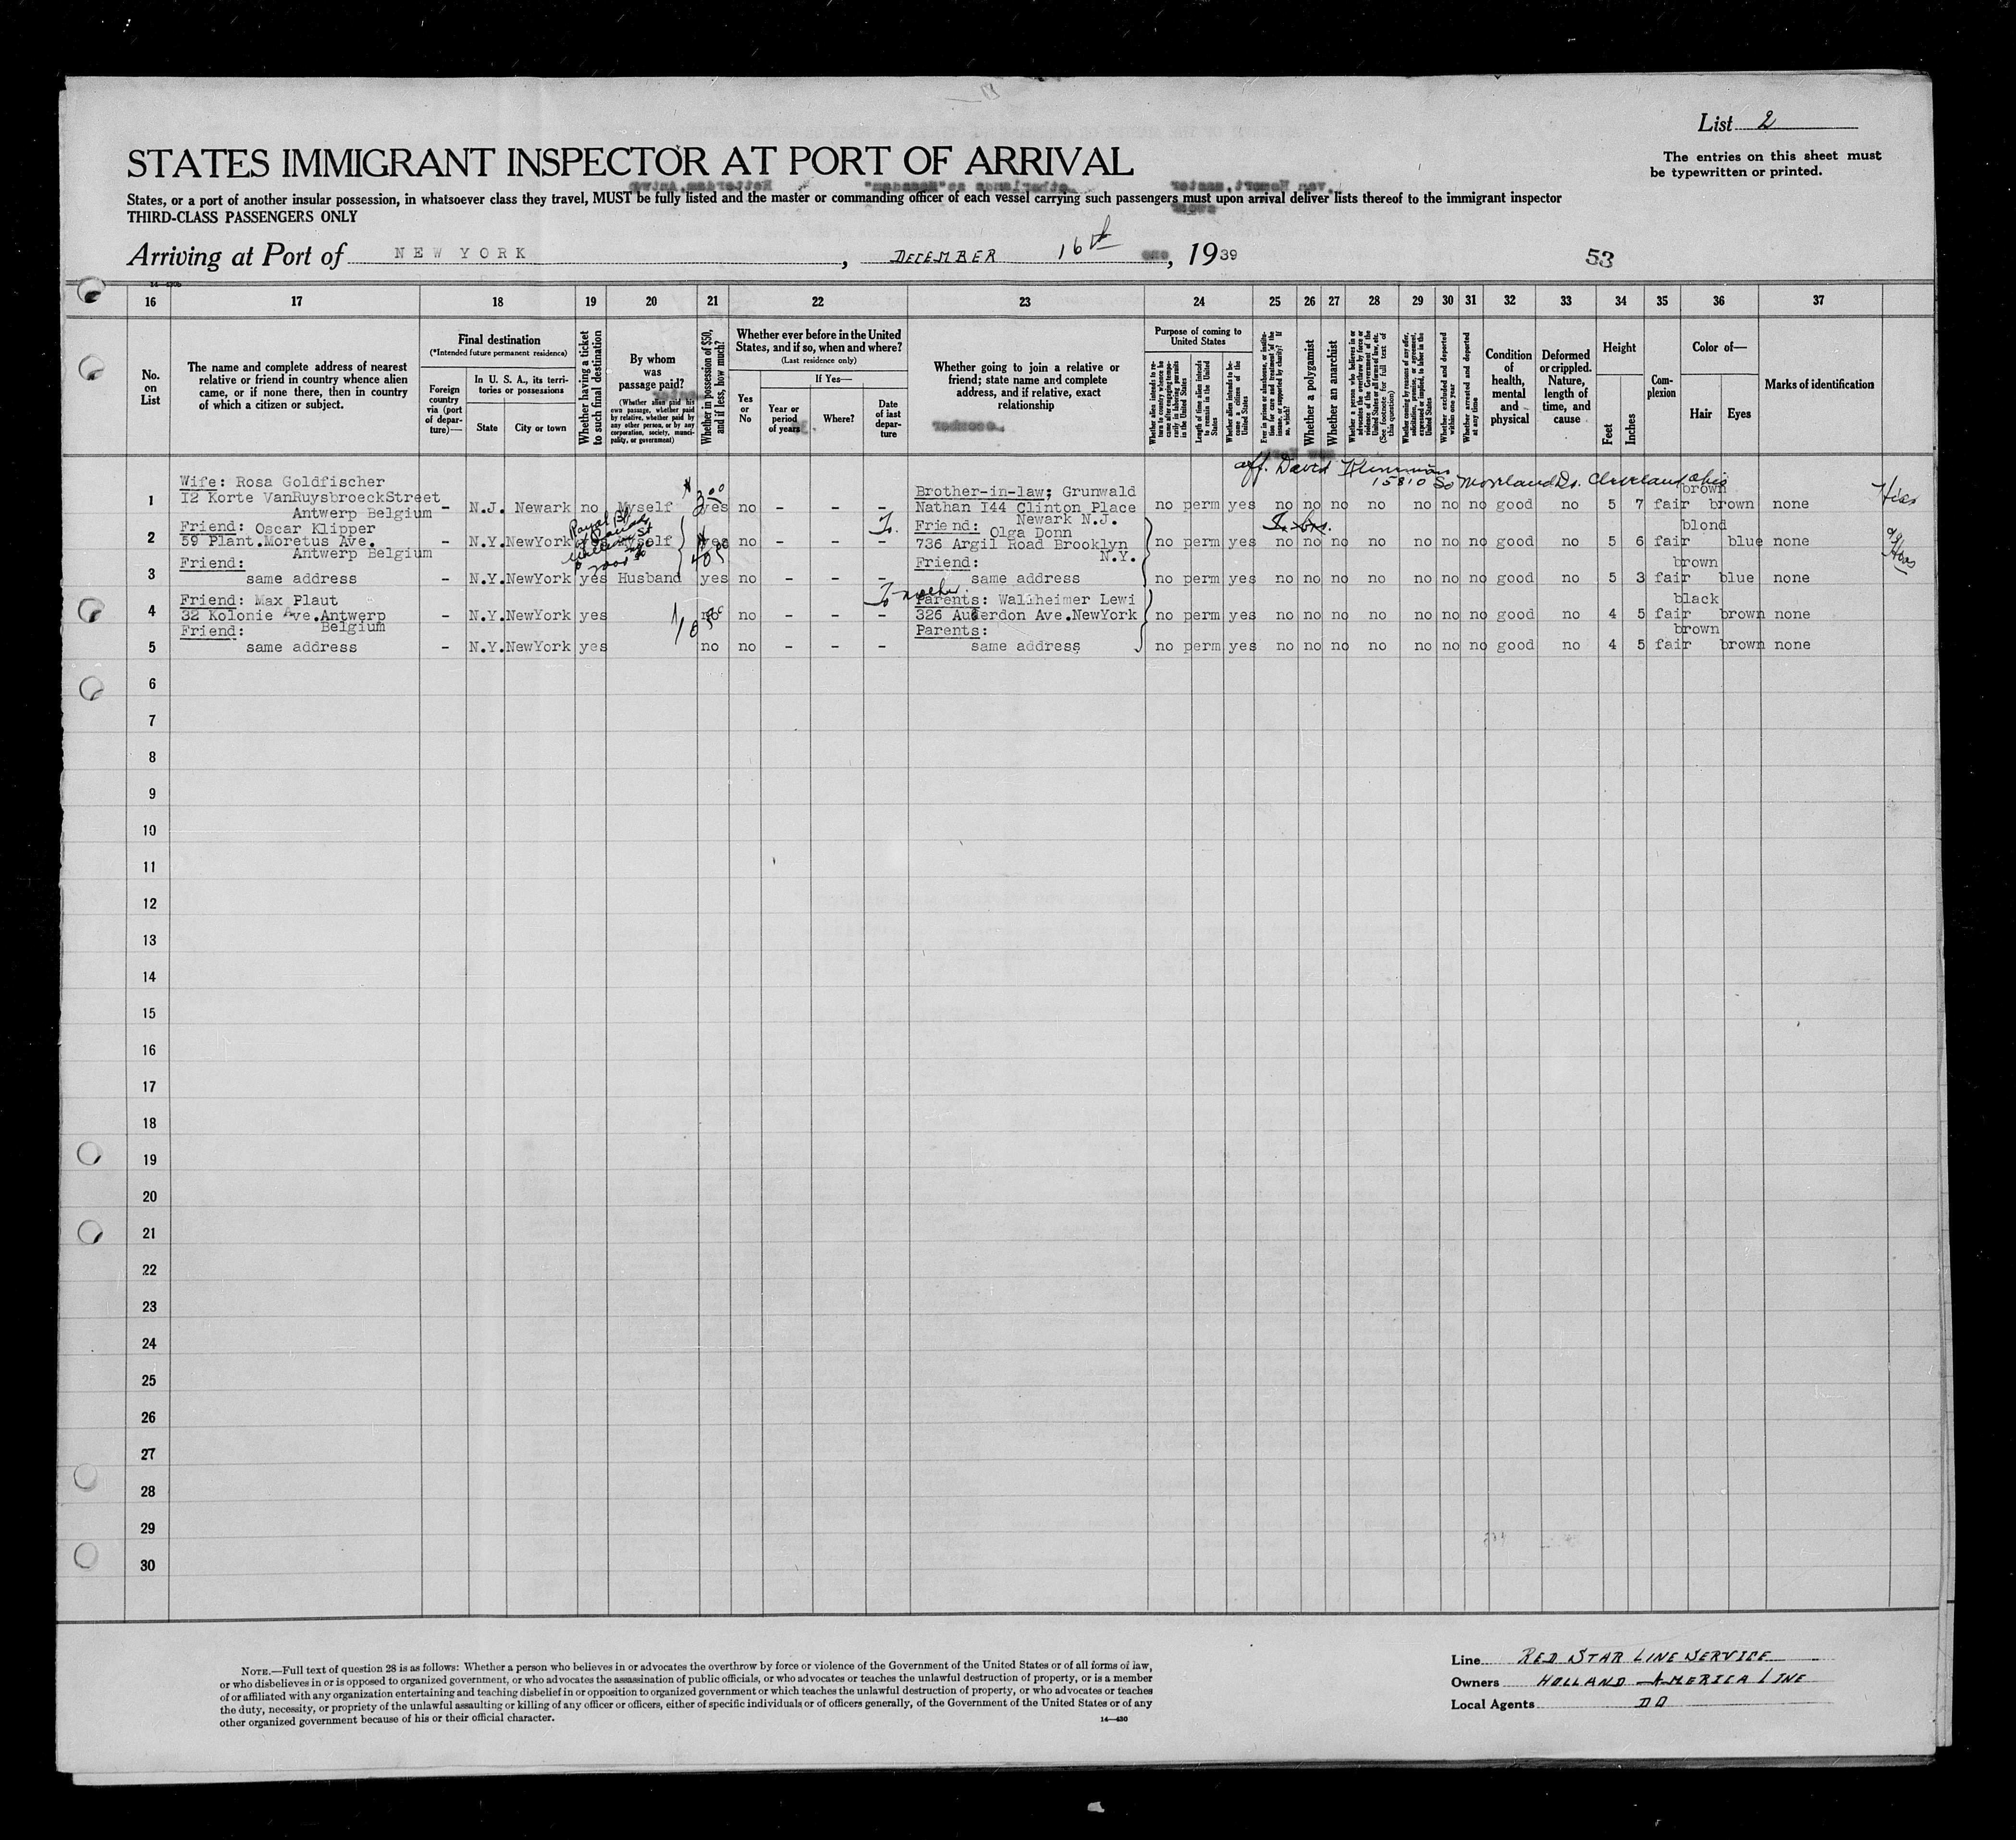 List 2
The entries on this sheet must
be typewritten or printed.
STATES IMMIGRANT INSPECTOR AT PORT OF ARRIVAL
States, or a port of another insular possession, in whatsoever class they travel, MUST be fully listed and the master or commanding officer of each vessel carrying such passengers must upon arrival deliver lists thereof to the immigrant inspector
THIRD-CLASS PASSENGERS ONLY
Arriving at Port of NEW YORK, DECEMBER 16th, 1939
53
16 17 18 19 20 21 22 23 24 25 26 27 28 29 30 31 32 33 34 35 36 37
No. on List
The name and complete address of nearest
relative or friend in country whence alien
came, or if none there, then in country
of which a citizen or subject.
Final destination
(*Intended future permanent residence)
Foreign country via (port of departure)—
In U. S. A., its territories or possessions
State
City or town
Whether having a ticket to such final destination
By whom was passage paid?
(Whether alien paid his own passage, whether paid by relative, whether paid by any other person, or by any corporation, society, municipality, or government)
Whether in possession of $50, and if less, how much?
Whether ever before in the United States, and if so, when and where?
(Last residence only)
Yes or No
If Yes—
Year or period of years
Where?
Date of last departure
Whether going to join a relative or
friend; state name and complete
address, and if relative, exact
relationship
Purpose of coming to United States
Whether alien intends to return to country whence he came after engaging temporarily in laboring pursuits in the United States
Length of time alien intends to remain in the United States
Whether alien intends to become a citizen of the United States
Ever in prison or almshouse, or institution for care and treatment of the insane, or supported by charity? If so, which?
Whether a polygamist
Whether an anarchist
Whether a person who believes in or advocates the overthrow by force or violence of the Government of the United States or all forms of law, etc. (See footnote for full text of this question)
Whether coming by reasons of any offer, solicitation, promise, or agreement, expressed or implied, to labor in the United States
Whether excluded and deported within one year
Whether arrested and deported at any time
Condition of health, mental and physical
Deformed or crippled. Nature, length of time, and cause
Height
Feet
Inches
Complexion
Color of—
Hair
Eyes
Marks of identification
aff. David
15810 So Moreland Dr. Cleveland Ohio
1 Wife: Rosa Goldfischer
I2 Korte VanRuysbroeckStreet
Antwerp Belgium - N.J. Newark no Myself $300 yes no - - -
Brother-in-law; Grunwald
Nathan I44 Clinton Place
Newark N.J.
no perm yes no no no no no no no good no 5 7 fair brown brown none Hias
2 Friend: Oscar Klipper
59 Plant.Moretus Ave.
Antwerp Belgium - N.Y. NewYork Myself yes no - - -
Friend: Olga Donn
736 Argil Road Brooklyn
N.Y.
no perm yes no no no no no no no good no 5 6 fair blond blue none
3 Friend:
same address - N.Y. NewYork yes Husband yes no - - -
Friend:
same address no perm yes no no no no no no no good no 5 3 fair brown blue none
4 Friend: Max Plaut
32 Kolonie Ave.Antwerp
Belgium - N.Y. NewYork yes no no - - -
To mother.
Parents: Wallheimer Lewi
326 Auderdon Ave.NewYork
no perm yes no no no no no no no good no 4 5 fair black brown none
5 Friend:
same address - N.Y. NewYork yes no no - - -
Parents:
same address no perm yes no no no no no no no good no 4 5 fair brown brown none
6
7
8
9
10
11
12
13
14
15
16
17
18
19
20
21
22
23
24
25
26
27
28
29
30
NOTE.—Full text of question 28 is as follows: Whether a person who believes in or advocates the overthrow by force or violence of the Government of the United States or of all forms of law,
or who disbelieves in or is opposed to organized government, or who advocates the assassination of public officials, or who advocates or teaches the unlawful destruction of property, or is a member
of or affiliated with any organization entertaining and teaching disbelief in or opposition to organized government or which teaches the unlawful destruction of property, or who advocates or teaches
the duty, necessity, or propriety of the unlawful assaulting or killing of any officer or officers, either of specific individuals or of officers generally, of the Government of the United States or of any
other organized government because of his or their official character.
14—430
Line RED STAR LINE SERVICE
Owners HOLLAND AMERICA LINE
Local Agents DO